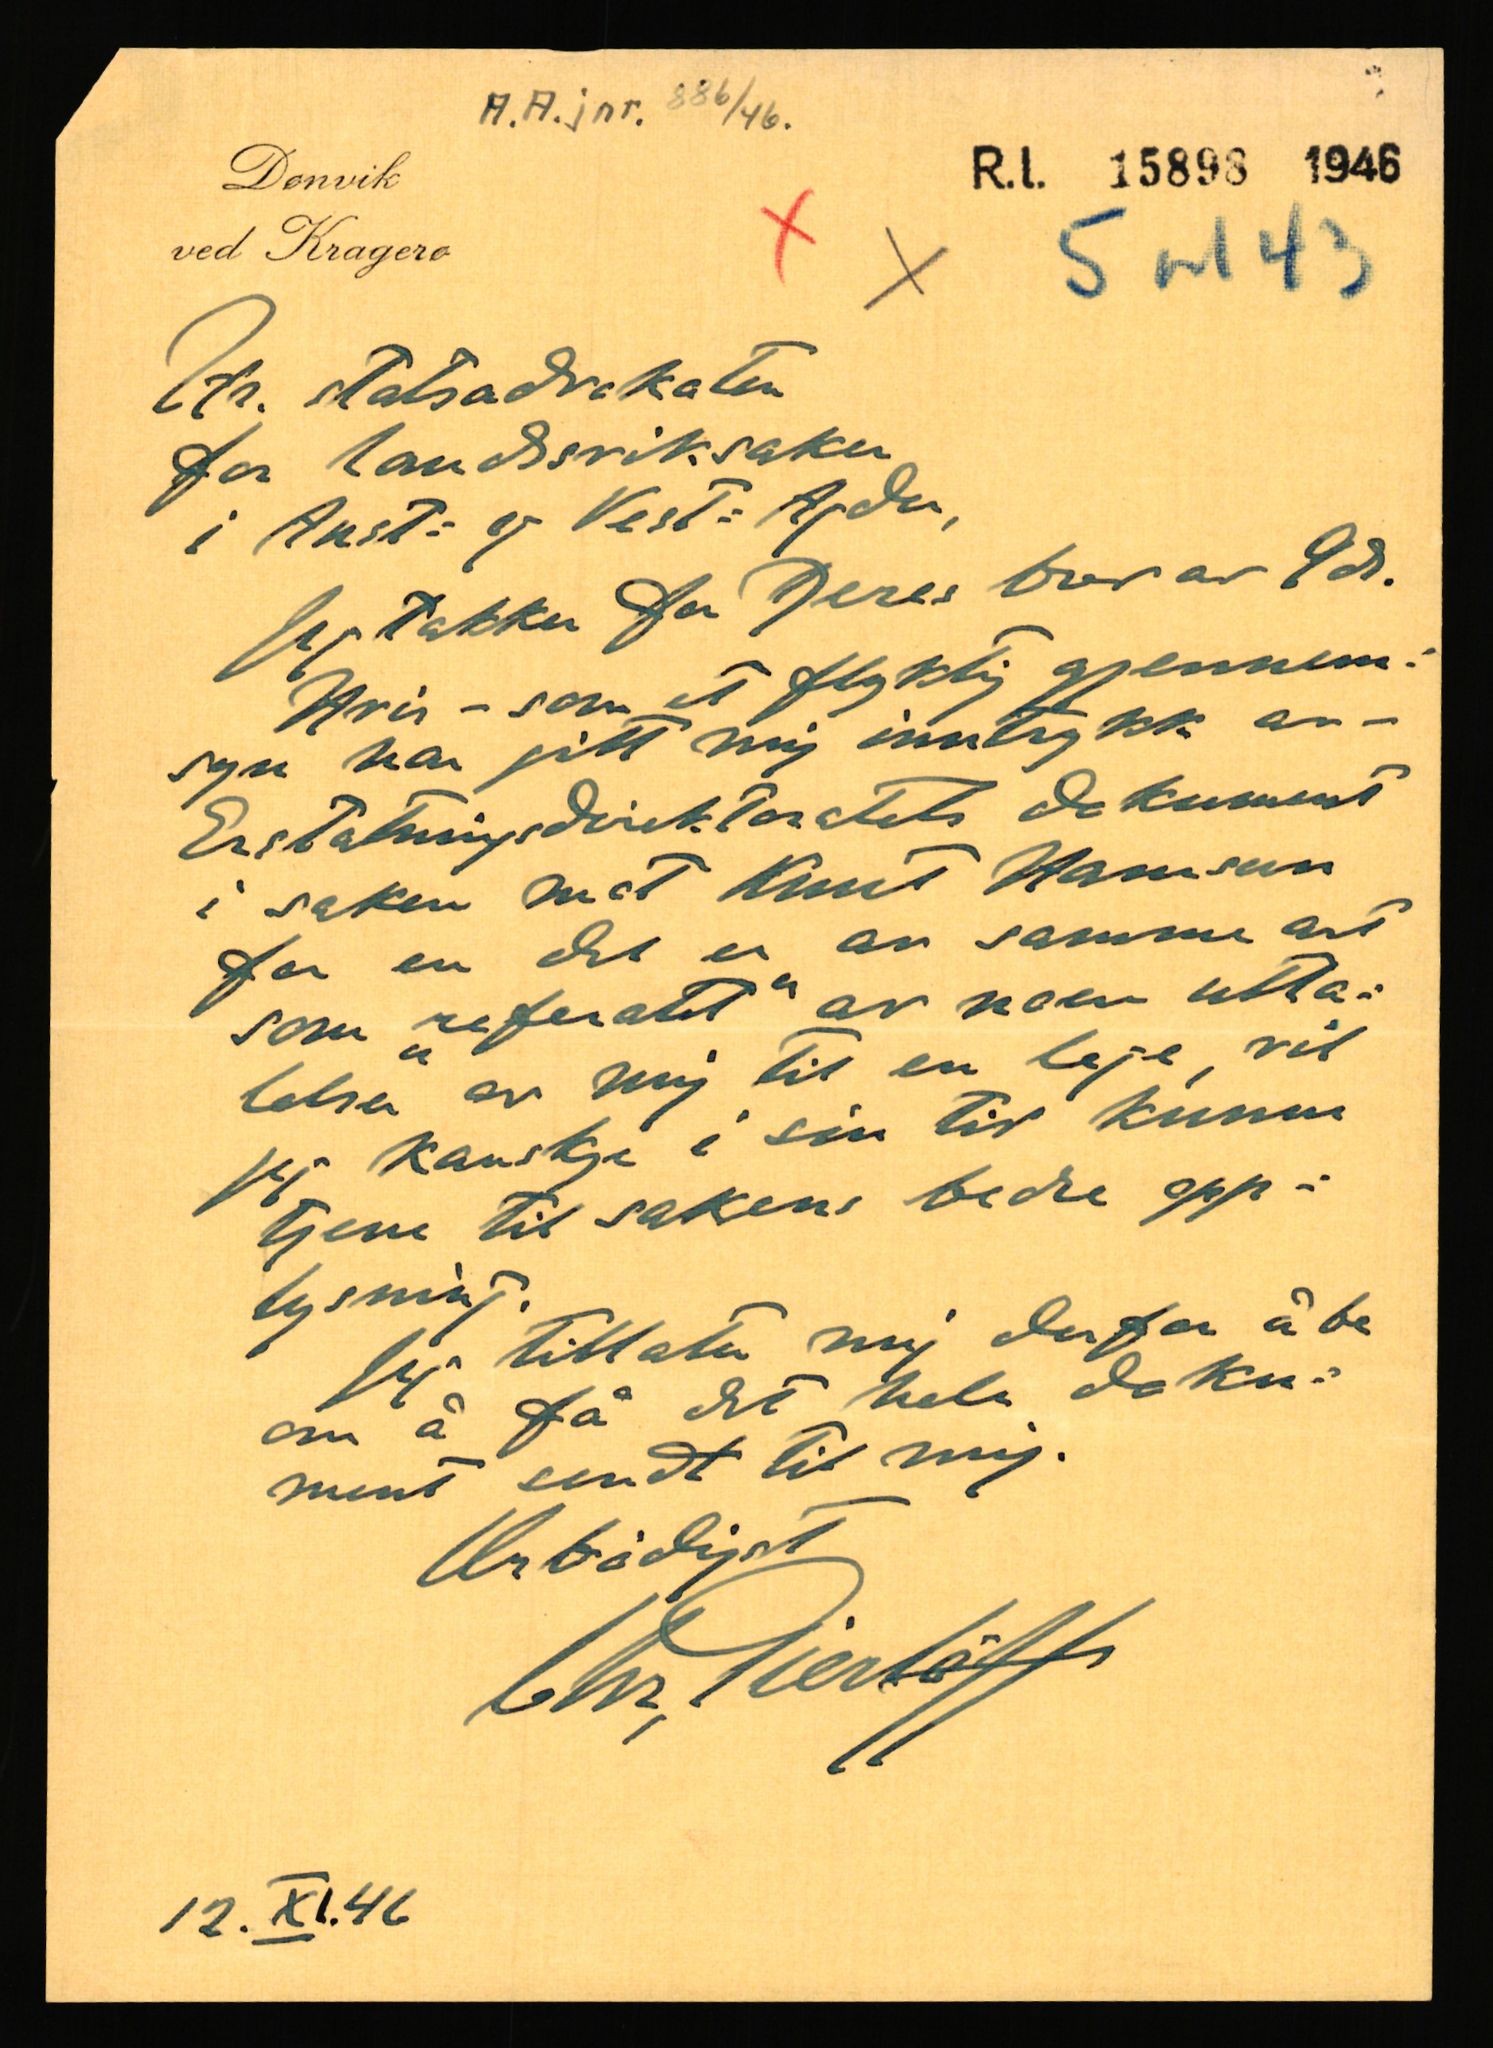 A.A. jnr. 886/46.
Donvik
ved Kragerø
R.I. 15898 1946
5 43
Hr. statsadvokaten
for landssviksaker
i Aust- og Vest-Agder,
Jeg takker for Deres brev av 9ds.
Hvis – som et flyktig gjennem-
syn har gitt mig inntrykk av –
Erstatningsdirektoratets dokument
i saken mot Knut Hamsun
for en del er av samme art
som "referatet" av noen utta-
lelser av mig til en lege, vil
jeg kanskje i sin tid kunne
tjene til sakens bedre opp-
lysning.
Jeg tillater mig derfor å be
om å få det hele doku-
ment sendt til mig.
Ærbødigst
Chr. Gierløff
12.XI.46